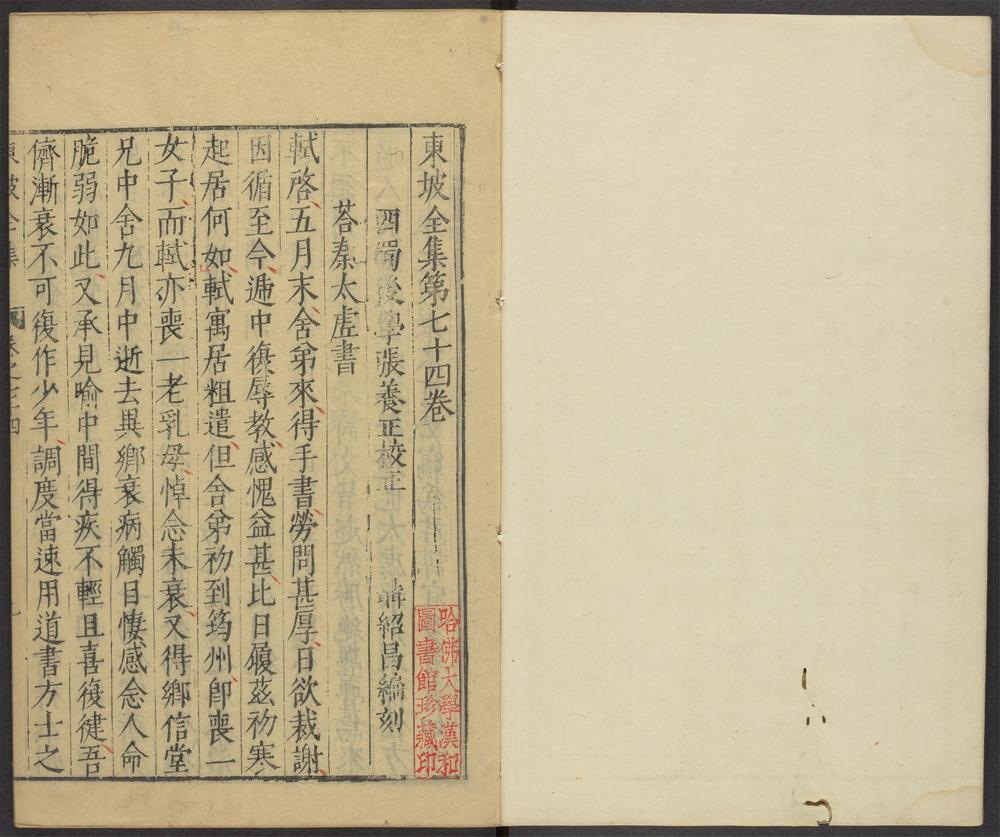 東坡全集第七十四卷
西蜀後學張養正校正 紹昌編刻
荅秦太虛書
軾啓五月末舍弟來得手書勞問甚厚日欲裁謝
因循至今遞中復辱教感愧益甚比日履茲初寒
起居何如軾寓居粗遣但舍弟初到筠州卽喪一
女子而軾亦喪一老乳母悼念未衰又得鄉信堂
兄中舍九月中逝去異鄉衰病觸目悽感念人命
脆弱如此又承見喻中間得疾不輕且喜復健吾
儕漸衰不可復作少年調度當速用道書方士之
東坡全集 卷之七十四
哈佛大學漢和
圖書館珍藏印